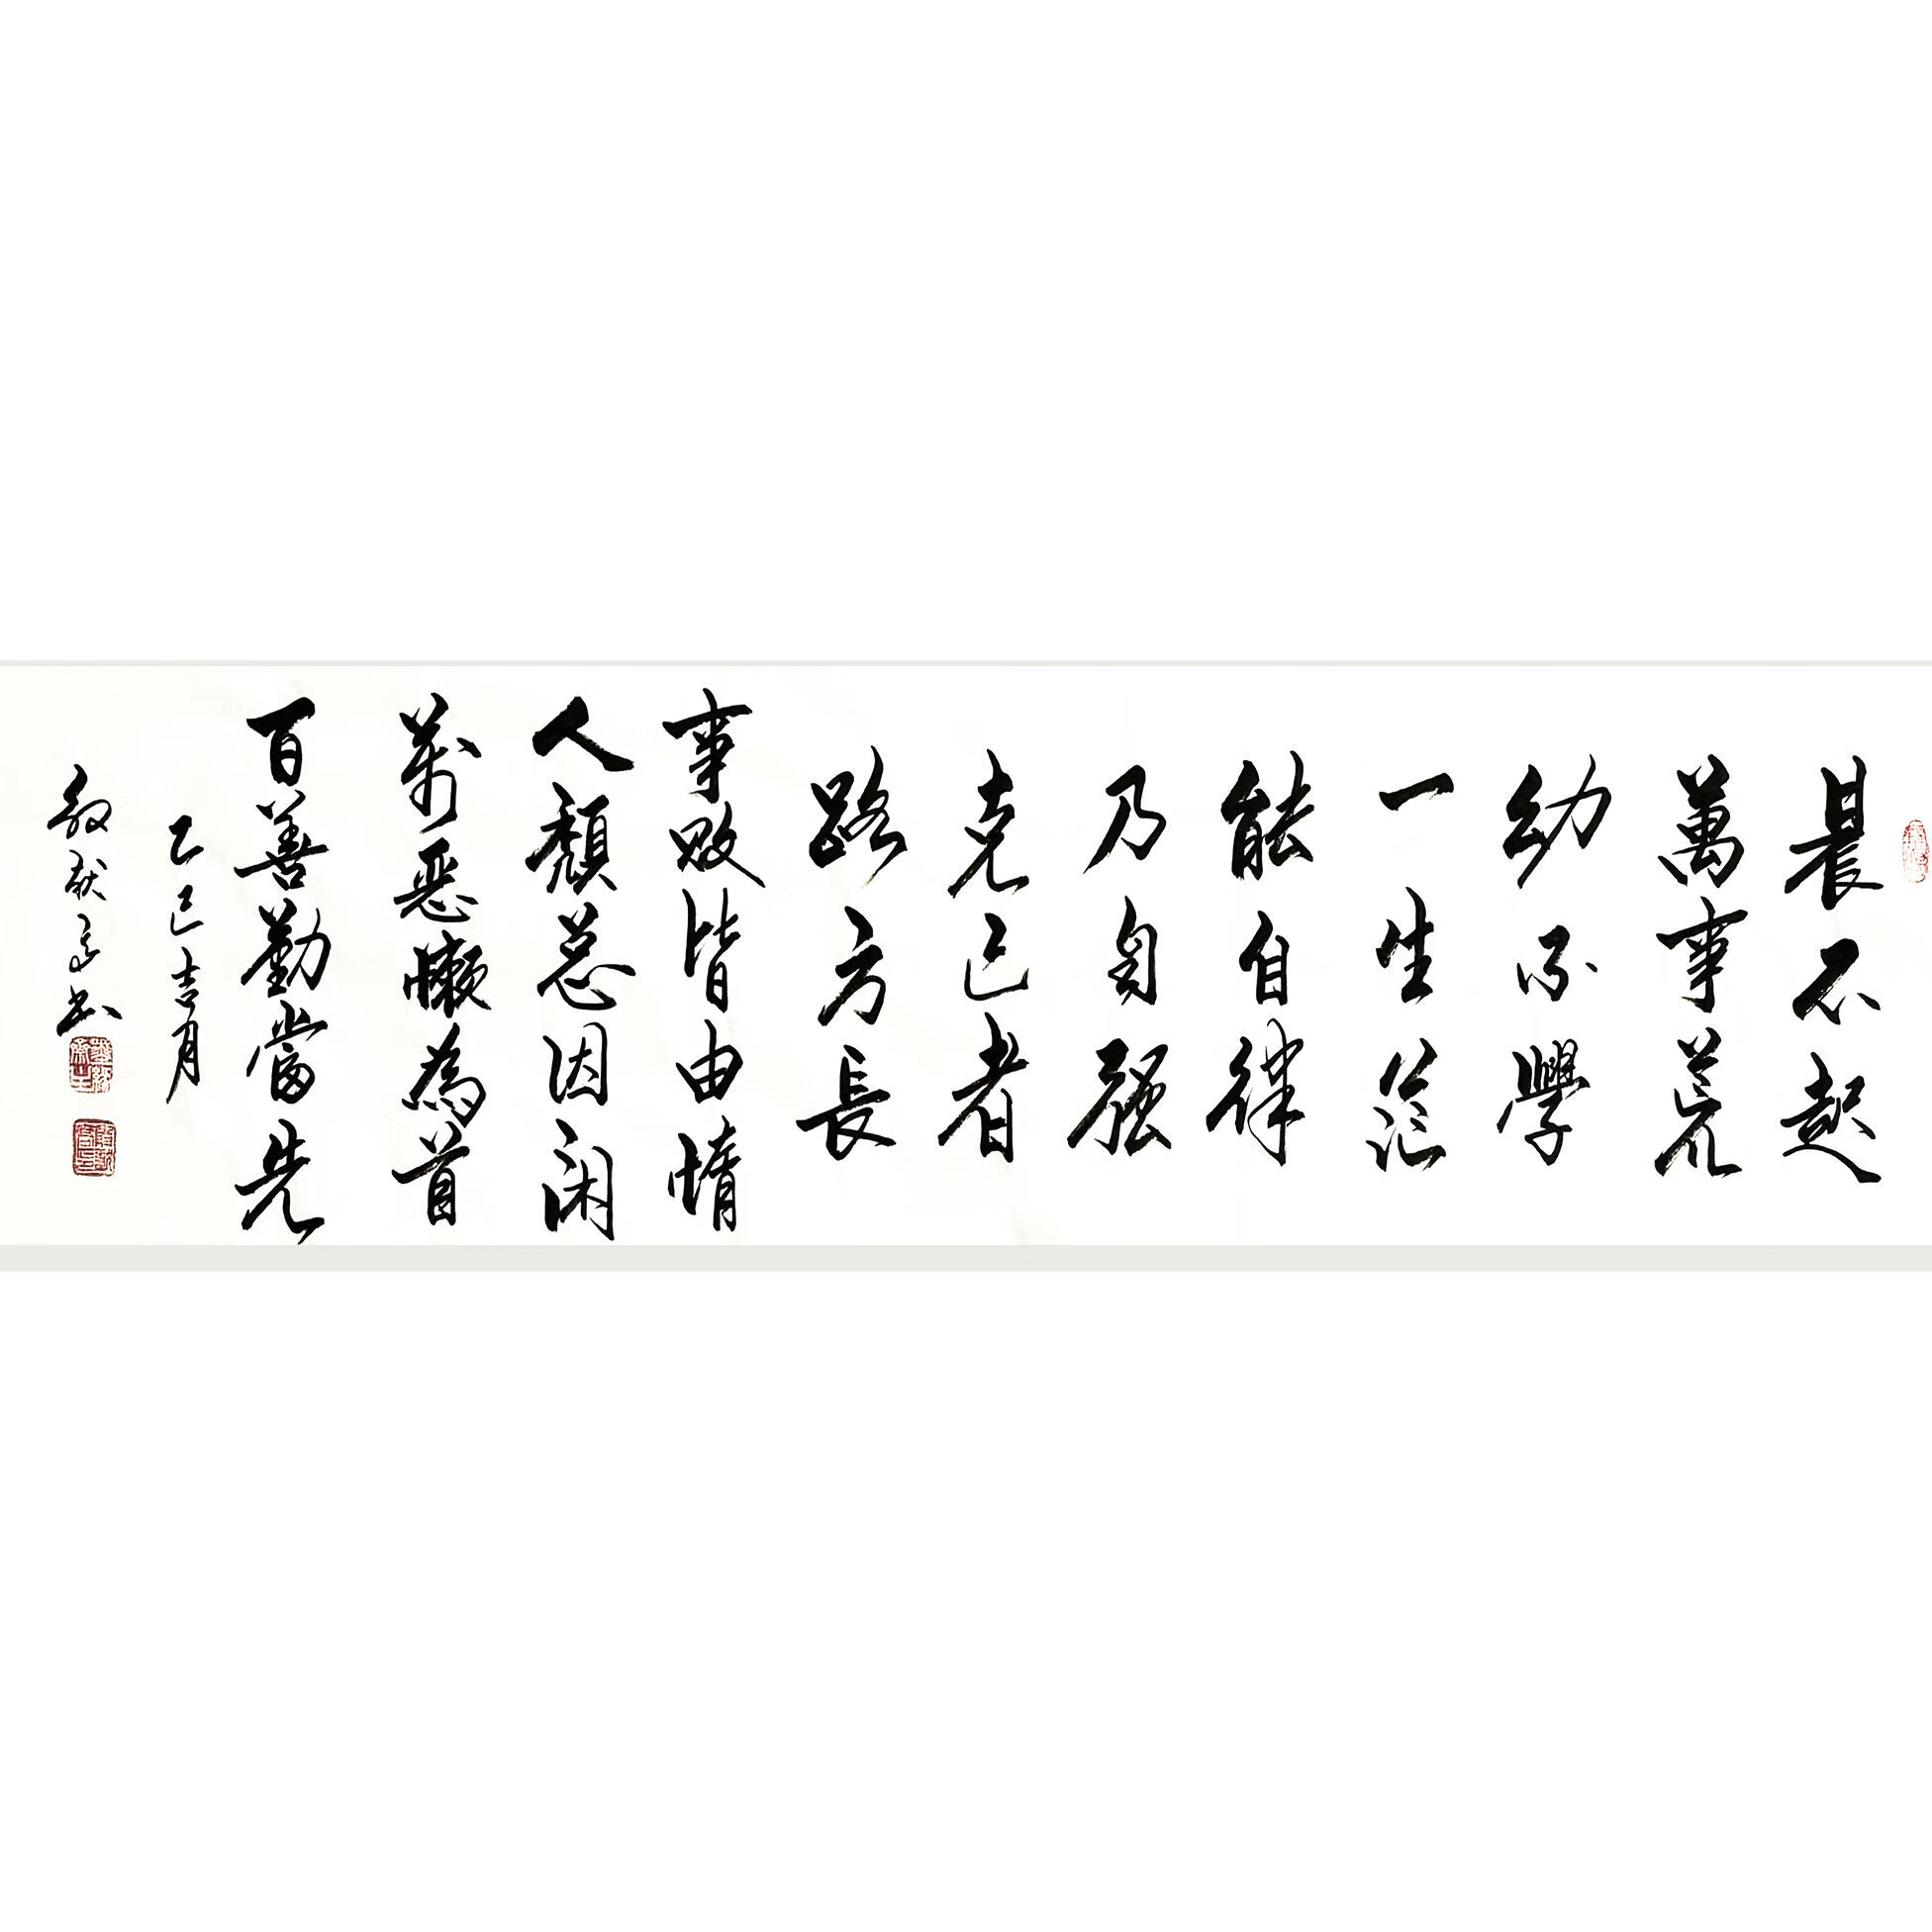 晨不起
萬事荒
幼不學
一生茫
能自律
乃自強
克己者
路方長
事敗皆由惰
人頹總因閑
萬惡懶為首
百善勤當先
乙巳吉月